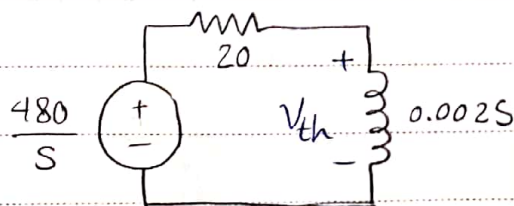 20
+
480
S
+
-
Vth
0.002S
-